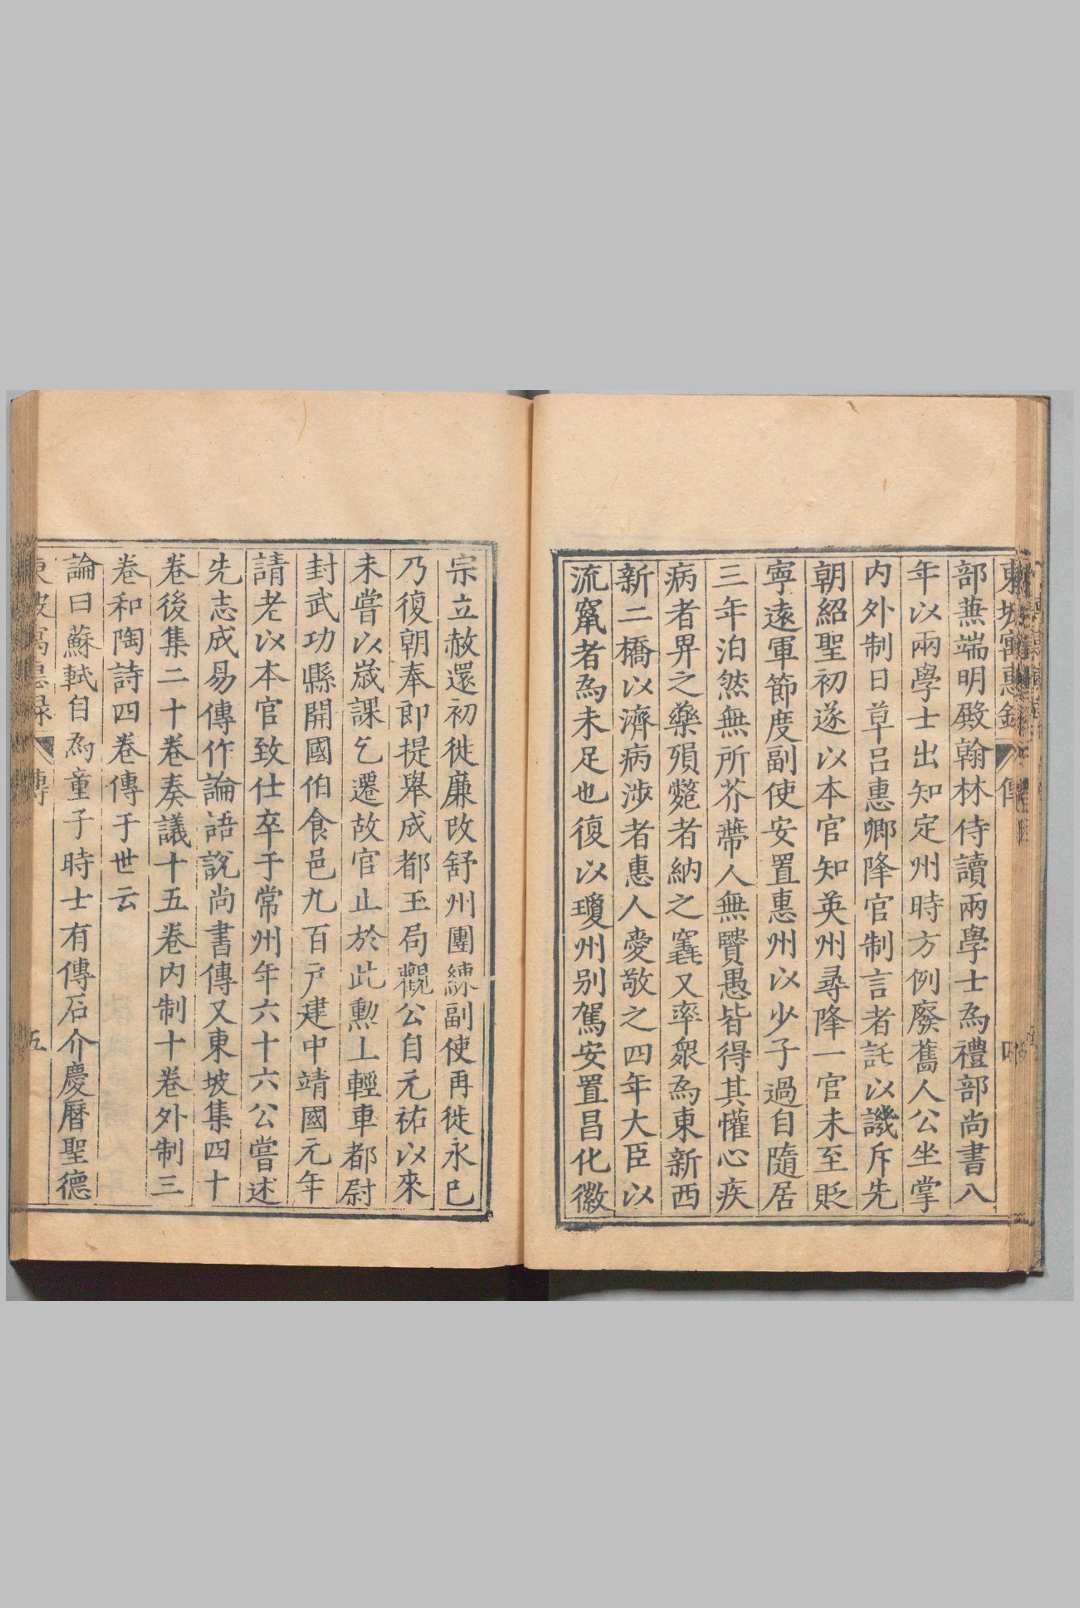 東坡寓惠錄 傳
部蕪端明殿翰林侍讀兩學士為禮部尚書八
年以兩學士出知定州時方例廢舊人公坐掌
内外制日草呂惠卿降官制言者託以譏斥先
朝紹聖初遂以本官知英州尋降一官未至貶
寧遠軍節度副使安置惠州以少子過自隨居
三年泊然無所芥蔕人無賢愚皆得其懽心疾
病者畀之藥殞斃者納之窆又率衆為東新西
新二橋以濟病涉者惠人愛敬之四年大臣以
流竄者為未足也復以瓊州别駕安置昌化徽
宗立赦還初徙廉改舒州團練副使再徙永已
乃復朝奉郎提舉成都玉局觀公自元祐以來
未嘗以歲課乞遷故官止於此勲上輕車都尉
封武功縣開國伯食邑九百戶建中靖國元年
請老以本官致仕卒于常州年六十六公嘗述
先志成易傳作論語說尚書傳又東坡集四十
卷後集二十卷奏議十五卷内制十卷外制三
卷和陶詩四卷傳于世云
論曰蘇軾自為童子時士有傳石介慶曆聖德
東坡寓惠録 傳 五